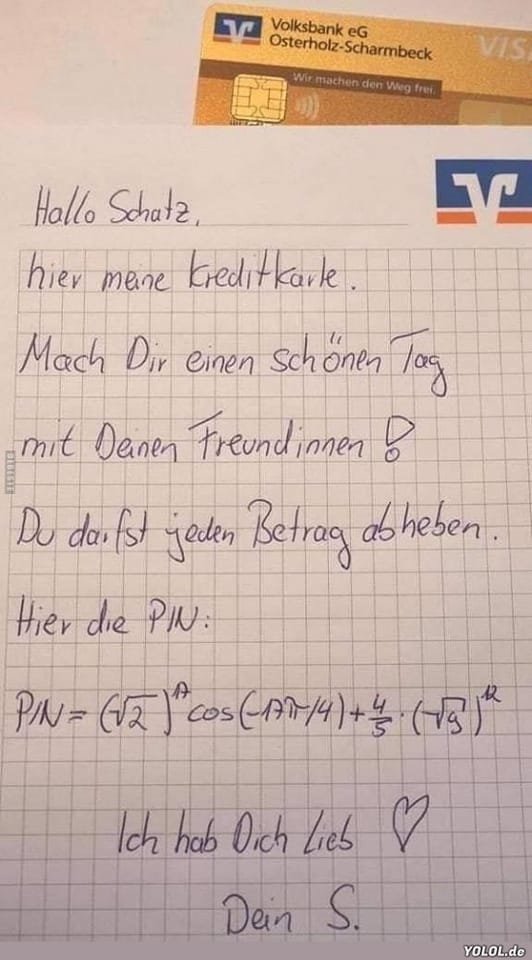 Volksbank eG
Osterholz-Scharmbeck
VISA
Wir machen den Weg frei.
Hallo Schatz,
hier meine Kreditkarte.
Mach Dir einen schönen Tag
mit Deinen Freundinnen!
Du darfst jeden Betrag abheben.
Hier die PIN:
PIN = (√2)^17 cos(-17π/4) + 4/5 · (-√9)^12
Ich hab Dich Lieb ♡
Dein S.
YOLOL.de